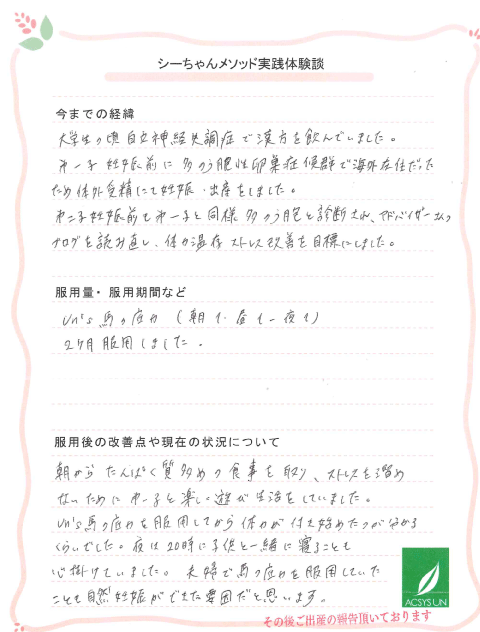 シーちゃんメソッド実践体験談
今までの経緯
大学生の頃自立神経失調症で漢方を飲んでいました。
第一子妊娠前に多のう胞性卵巣症候群で海外在住だった
ため体外受精にて妊娠・出産をしました。
第二子妊娠前も第一子と同様多のう胞と診断され、アドバイザーさんの
ブログを読み直し、体力温存ストレス改善を目標にしました。
服用量・服用期間など
Un's 馬の症力 (朝1・昼1・夜1)
2ヶ月服用しました。
服用後の改善点や現在の状況について
朝からたんぱく質多めの食事を取り、ストレスを溜め
ないために第一子と楽しく遊び生活をしていました。
Un's馬の症力を服用してから体力が付き始めたのがわかる
くらいでした。夜は20時に子供と一緒に寝ることも
心掛けていました。夫婦で馬の症力を服用していた
ことも自然妊娠ができた要因だと思います。
ACSYSUN
その後ご出産の報告頂いております